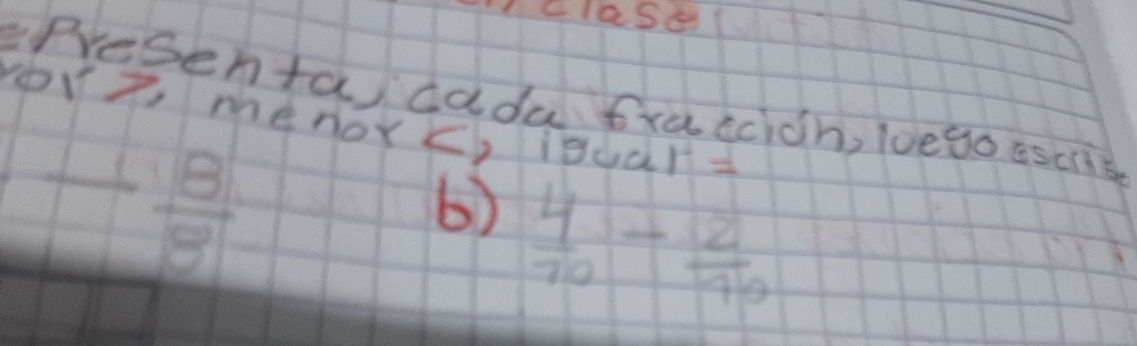 clase
Presenta, cada fracción, luego escribe
yor >, menor <, igual =
8/8 b) 4/10 - 2/10